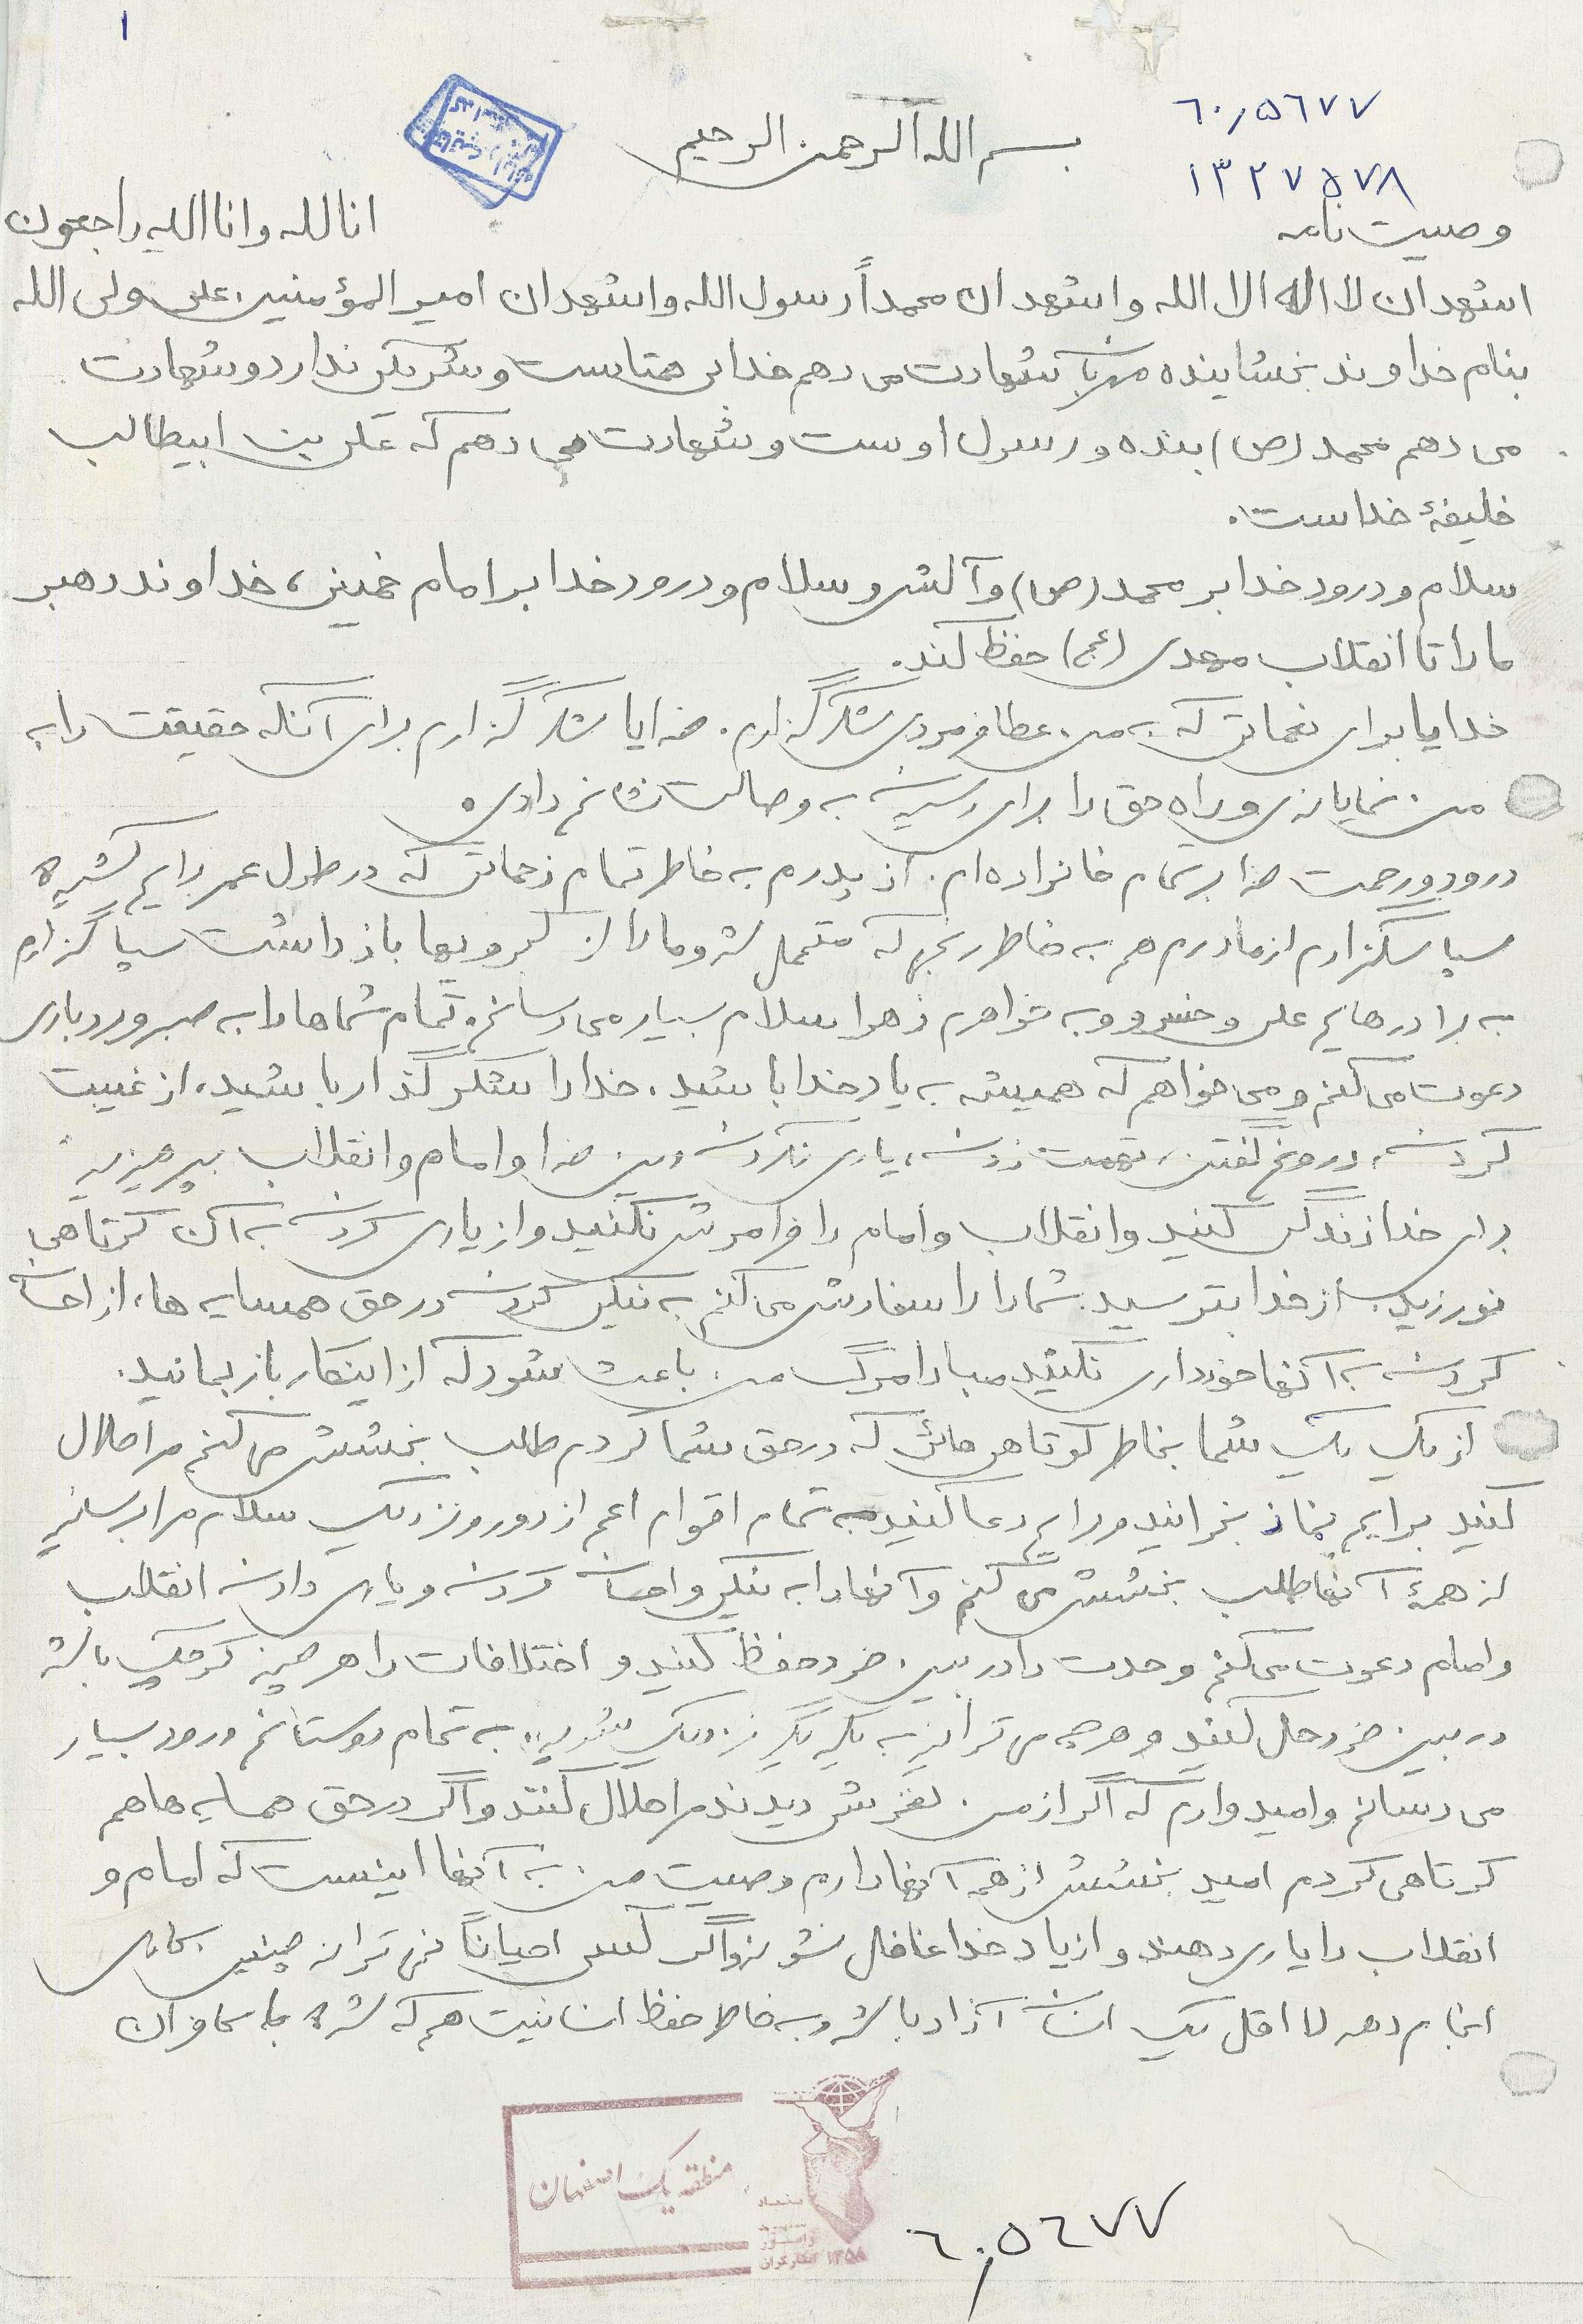 ۱
۶۰٫۵۶۷۷
بسم الله الرحمن الرحیم
۱۳۲۷۵۷۸
وصیت نامه
انا لله وانا الیه راجعون
اشهد ان لا اله الا الله واشهد ان محمداً رسول الله واشهد ان امیر المؤمنین علی ولی الله
بنام خداوند بخشاینده مهربان شهادت می دهم خدا بی همتاست و شریکی ندارد و شهادت
می دهم محمد (ص) بنده و رسول اوست و شهادت می دهم که علی بن ابیطالب
خلیفهٔ خداست.
سلام و درود خدا بر محمد (ص) و آلش و سلام و درود خدا بر امام خمینی، خداوند رهبر
ما را تا انقلاب مهدی (عج) حفظ کند.
خدایا برای نعماتی که به من عطا فرمودی شکرگزارم. خدایا شکر گزارم برای آنکه حقیقت را به
من نمایاندی و راه حق را برای رسیدن به وصالت نشانم دادی.
درود و رحمت خدا بر تمام خانواده ام. از پدرم به خاطر تمام زحماتی که در طول عمر برایم کشیده
سپاسگزارم از مادرم هم به خاطر رنجی که متحمل شد و ما را از کجرویها باز داشت سپاگزارم
به برادرهایم علی و خسرو و به خواهرم زهرا سلام بسیار می رسانم. تمام شماها را به صبر و بردباری
دعوت می کنم و می خواهم که همیشه به یاد خدا باشید. خدا را شکر گذار باشید، از غیبت
کردن، دروغ گفتن، تهمت زدن، یاری نکردن دین خدا و امام و انقلاب بپرهیزید
برای خدا زندگی کنید و انقلاب و امام را فراموش نکنید و از یاری کردن به آن کوتاهی
نورزید. از خدا بترسید. شما را سفارش می کنم به نیکی کردن در حق همسایه ها، از احسان
کردن به آنها خودداری نکنید مبادا مرگ من باعث شود که از اینکار باز بمانید.
از یک یک شما بخاطر کوتاهی هائی که در حق شما کردم طلب بخشش می کنم مرا حلال
کنید برایم نماز بخوانید و برایم دعا کنید به تمام اقوام اعم از دور و نزدیک سلام مرا برسانید
از همهٔ آنها طلب بخشش می کنم و آنها را به نیکی و احسان کردن و یاری دادن انقلاب
و امام دعوت می کنم وحدت را در بین خود حفظ کنید و اختلافات را هر چند کوچک باشد
در بین خود حل کنید و هر چه می توانید به یکدیگر نزدیک شوید، به تمام دوستانم درود بسیار
می رسانم و امیدوارم که اگر از من لغزشی دیدند مرا حلال کنند و اگر در حق همسایه ها هم
کوتاهی کردم امید بخشش از همه آنها دارم وصیت من به آنها اینست که امام و
انقلاب را یاری دهند و از یاد خدا غافل نشوند و اگر کسی احیاناً نمی تواند چنین کاری
انجام دهد لا اقل یک انسان آزاد باشد و به خاطر حفظ انسانیت هم که شده با کافران
منطقه یک اصفهان
۱۳۵۸
۶۰٫۵۶۷۷